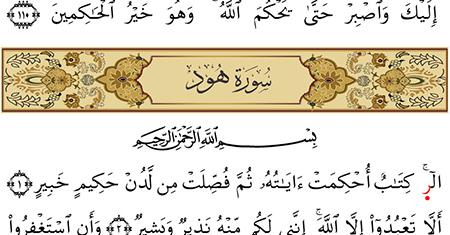 إِلَيْكَ وَٱصْبِرْ حَتَّىٰ يَحْكُمَ ٱللَّهُ ۚ وَهُوَ خَيْرُ ٱلْحَـٰكِمِينَ ﴿١١٠﴾
سُورَة هُود
بِسْمِ ٱللَّهِ ٱلرَّحْمَـٰنِ ٱلرَّحِيمِ
الٓر ۚ كِتَـٰبٌ أُحْكِمَتْ ءَايَـٰتُهُۥ ثُمَّ فُصِّلَتْ مِن لَّدُنْ حَكِيمٍ خَبِيرٍ ﴿١﴾
أَلَّا تَعْبُدُوٓا۟ إِلَّا ٱللَّهَ ۚ إِنَّنِى لَكُم مِّنْهُ نَذِيرٌ وَبَشِيرٌ ﴿٢﴾ وَأَنِ ٱسْتَغْفِرُوا۟